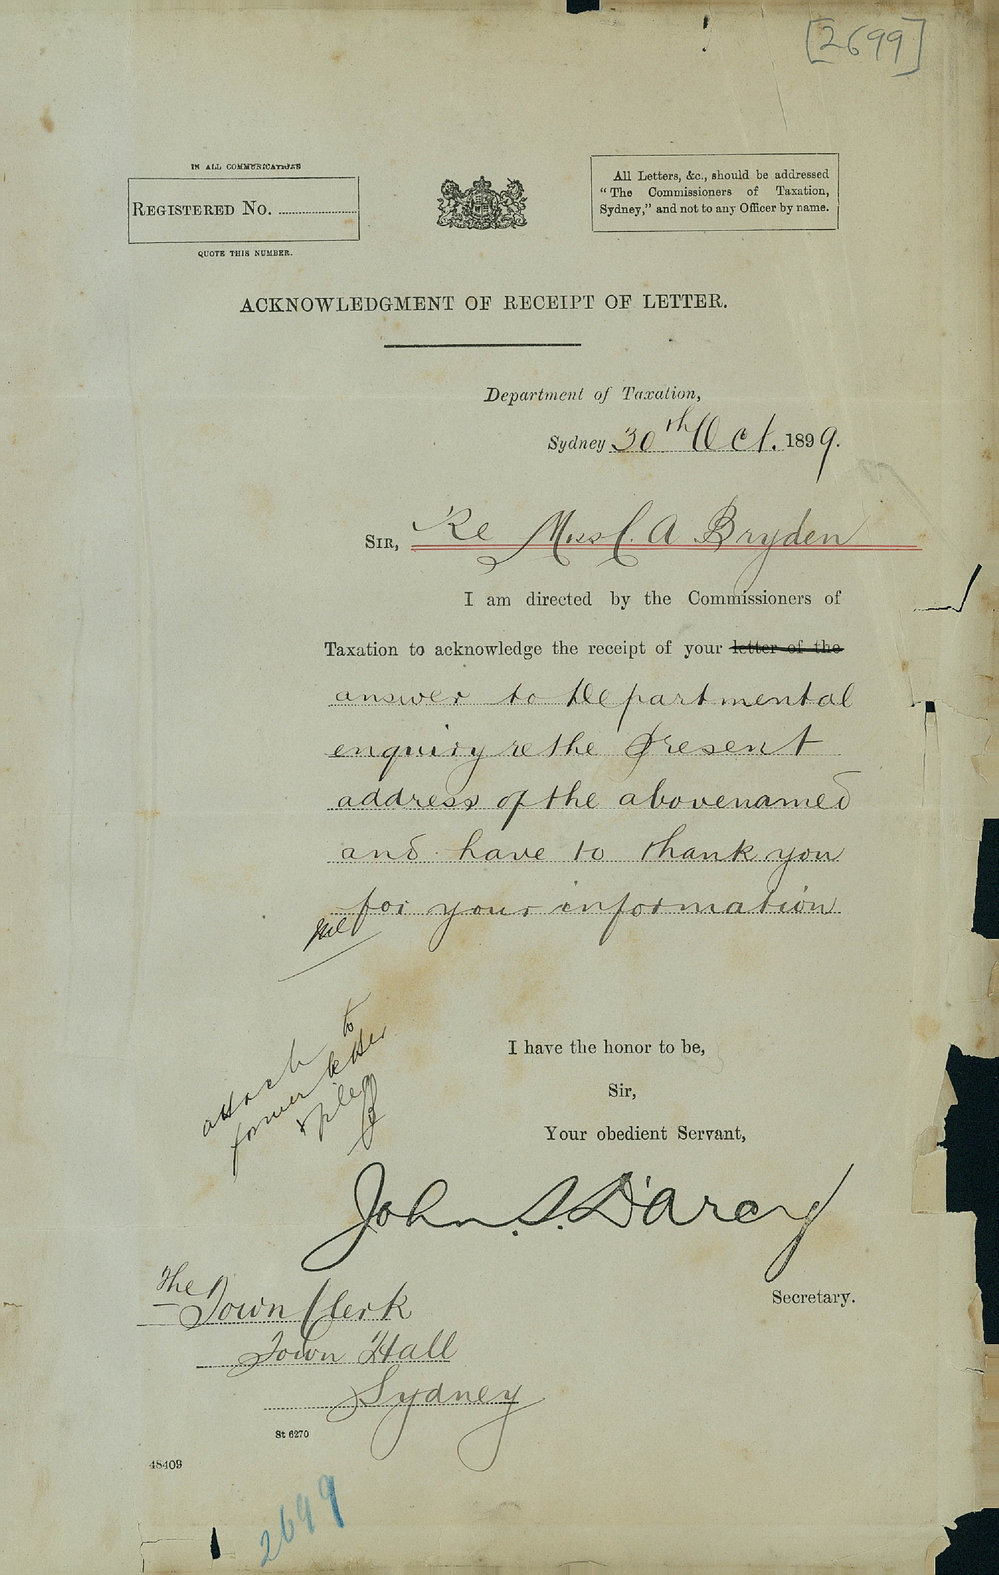 [2699]
IN ALL COMMUNICATIONS
REGISTERED NO.
QUOTE THIS NUMBER.
All Letters, &c., should be addressed
"The Commissioners of Taxation,
Sydney," and not to any Officer by name.
ACKNOWLEDGMENT OF RECEIPT OF LETTER.
Department of Taxation,
Sydney 30th Oct. 1899.
SIR, Re Miss C. A Bryden
I am directed by the Commissioners of
Taxation to acknowledge the receipt of your letter of the
answer to Departmental
enquiry re the present
address of the abovenamed
and have to thank you
for your information
attach to
former letter
& file
I have the honor to be,
Sir,
Your obedient Servant,
John. S. D'Arcy
Secretary.
The
Town Clerk
Town Hall
Sydney
St 6270
48409
2699